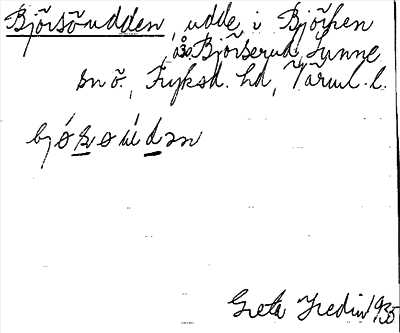 Björsöudden, udde i Björken
åso. Björserud, Sunne
sn ö., Fryksd. hd, Värml. l.
bjösoúdən
Greta Hedin 1935